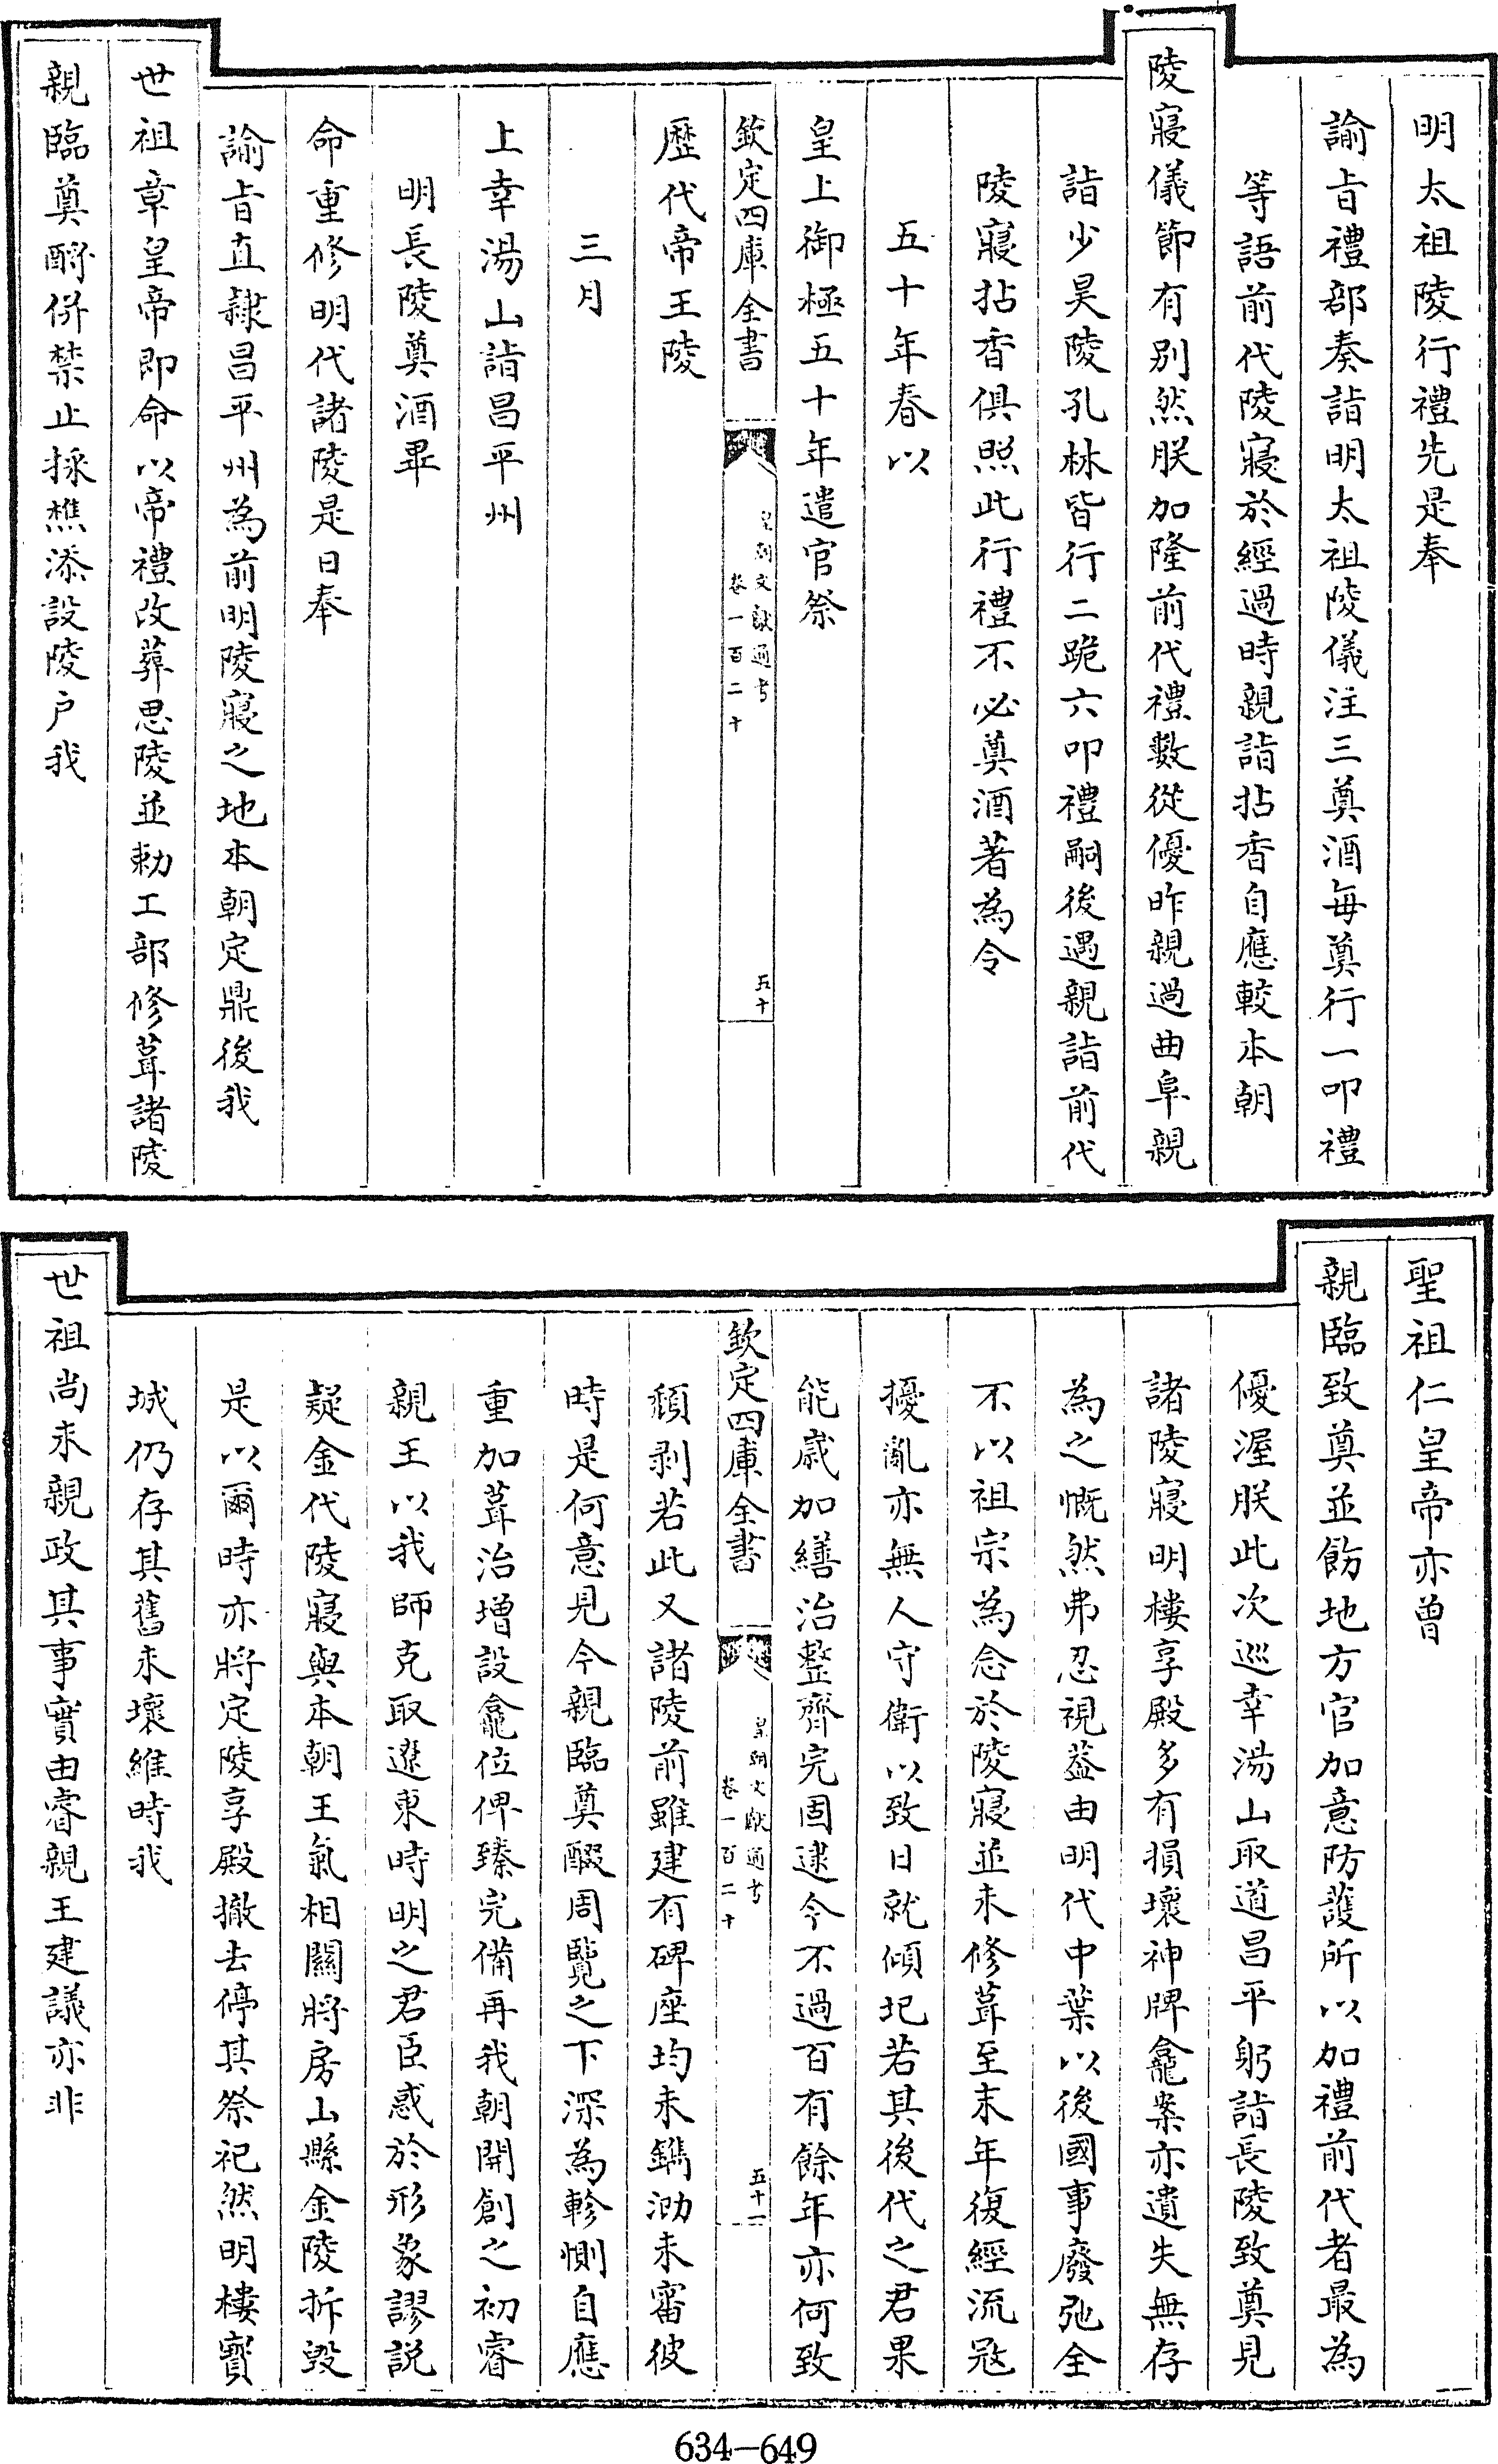 明太祖陵行禮先是奉
諭旨禮部奏詣明太祖陵儀注三奠酒每奠行一叩禮
等語前代陵寢於經過時親詣拈香自應較本朝
陵寢儀節有别然朕加隆前代禮數從優昨親過曲阜親
詣少昊陵孔林皆行二跪六叩禮嗣後遇親詣前代
陵寢拈香俱照此行禮不必奠酒著為令
五十年春以
皇上御極五十年遣官祭
欽定四庫全書
皇朝文獻通考
卷一百二十
五十
歷代帝王陵
三月
上幸湯山詣昌平州
明長陵奠酒畢
命重修明代諸陵是日奉
諭旨直隸昌平州為前明陵寢之地本朝定鼎後我
世祖章皇帝即命以帝禮改葬思陵並勅工部修葺諸陵
親臨奠酹併禁止採樵添設陵户我
聖祖仁皇帝亦曾
親臨致奠並飭地方官加意防護所以加禮前代者最為
優渥朕此次巡幸湯山取道昌平躬詣長陵致奠見
諸陵寢明樓享殿多有損壞神牌龕案亦遺失無存
為之慨然弗忍視葢由明代中葉以後國事廢弛全
不以祖宗為念於陵寢並未修葺至末年復經流寇
擾亂亦無人守衛以致日就傾圮若其後代之君果
能歲加繕治整齊完固逮今不過百有餘年亦何致
欽定四庫全書
皇朝文獻通考
卷一百二十
五十一
頽剥若此又諸陵前雖建有碑座均未鐫泐未審彼
時是何意見今親臨奠酹周覽之下深為軫惻自應
重加葺治增設龕位俾臻完備再我朝開創之初睿
親王以我師克取遼東時明之君臣惑於形象謬説
疑金代陵寢與本朝王氣相關將房山縣金陵拆毁
是以爾時亦將定陵享殿撤去停其祭祀然明樓寶
城仍存其舊未壞維時我
世祖尚未親政其事實由睿親王建議亦非
634-649